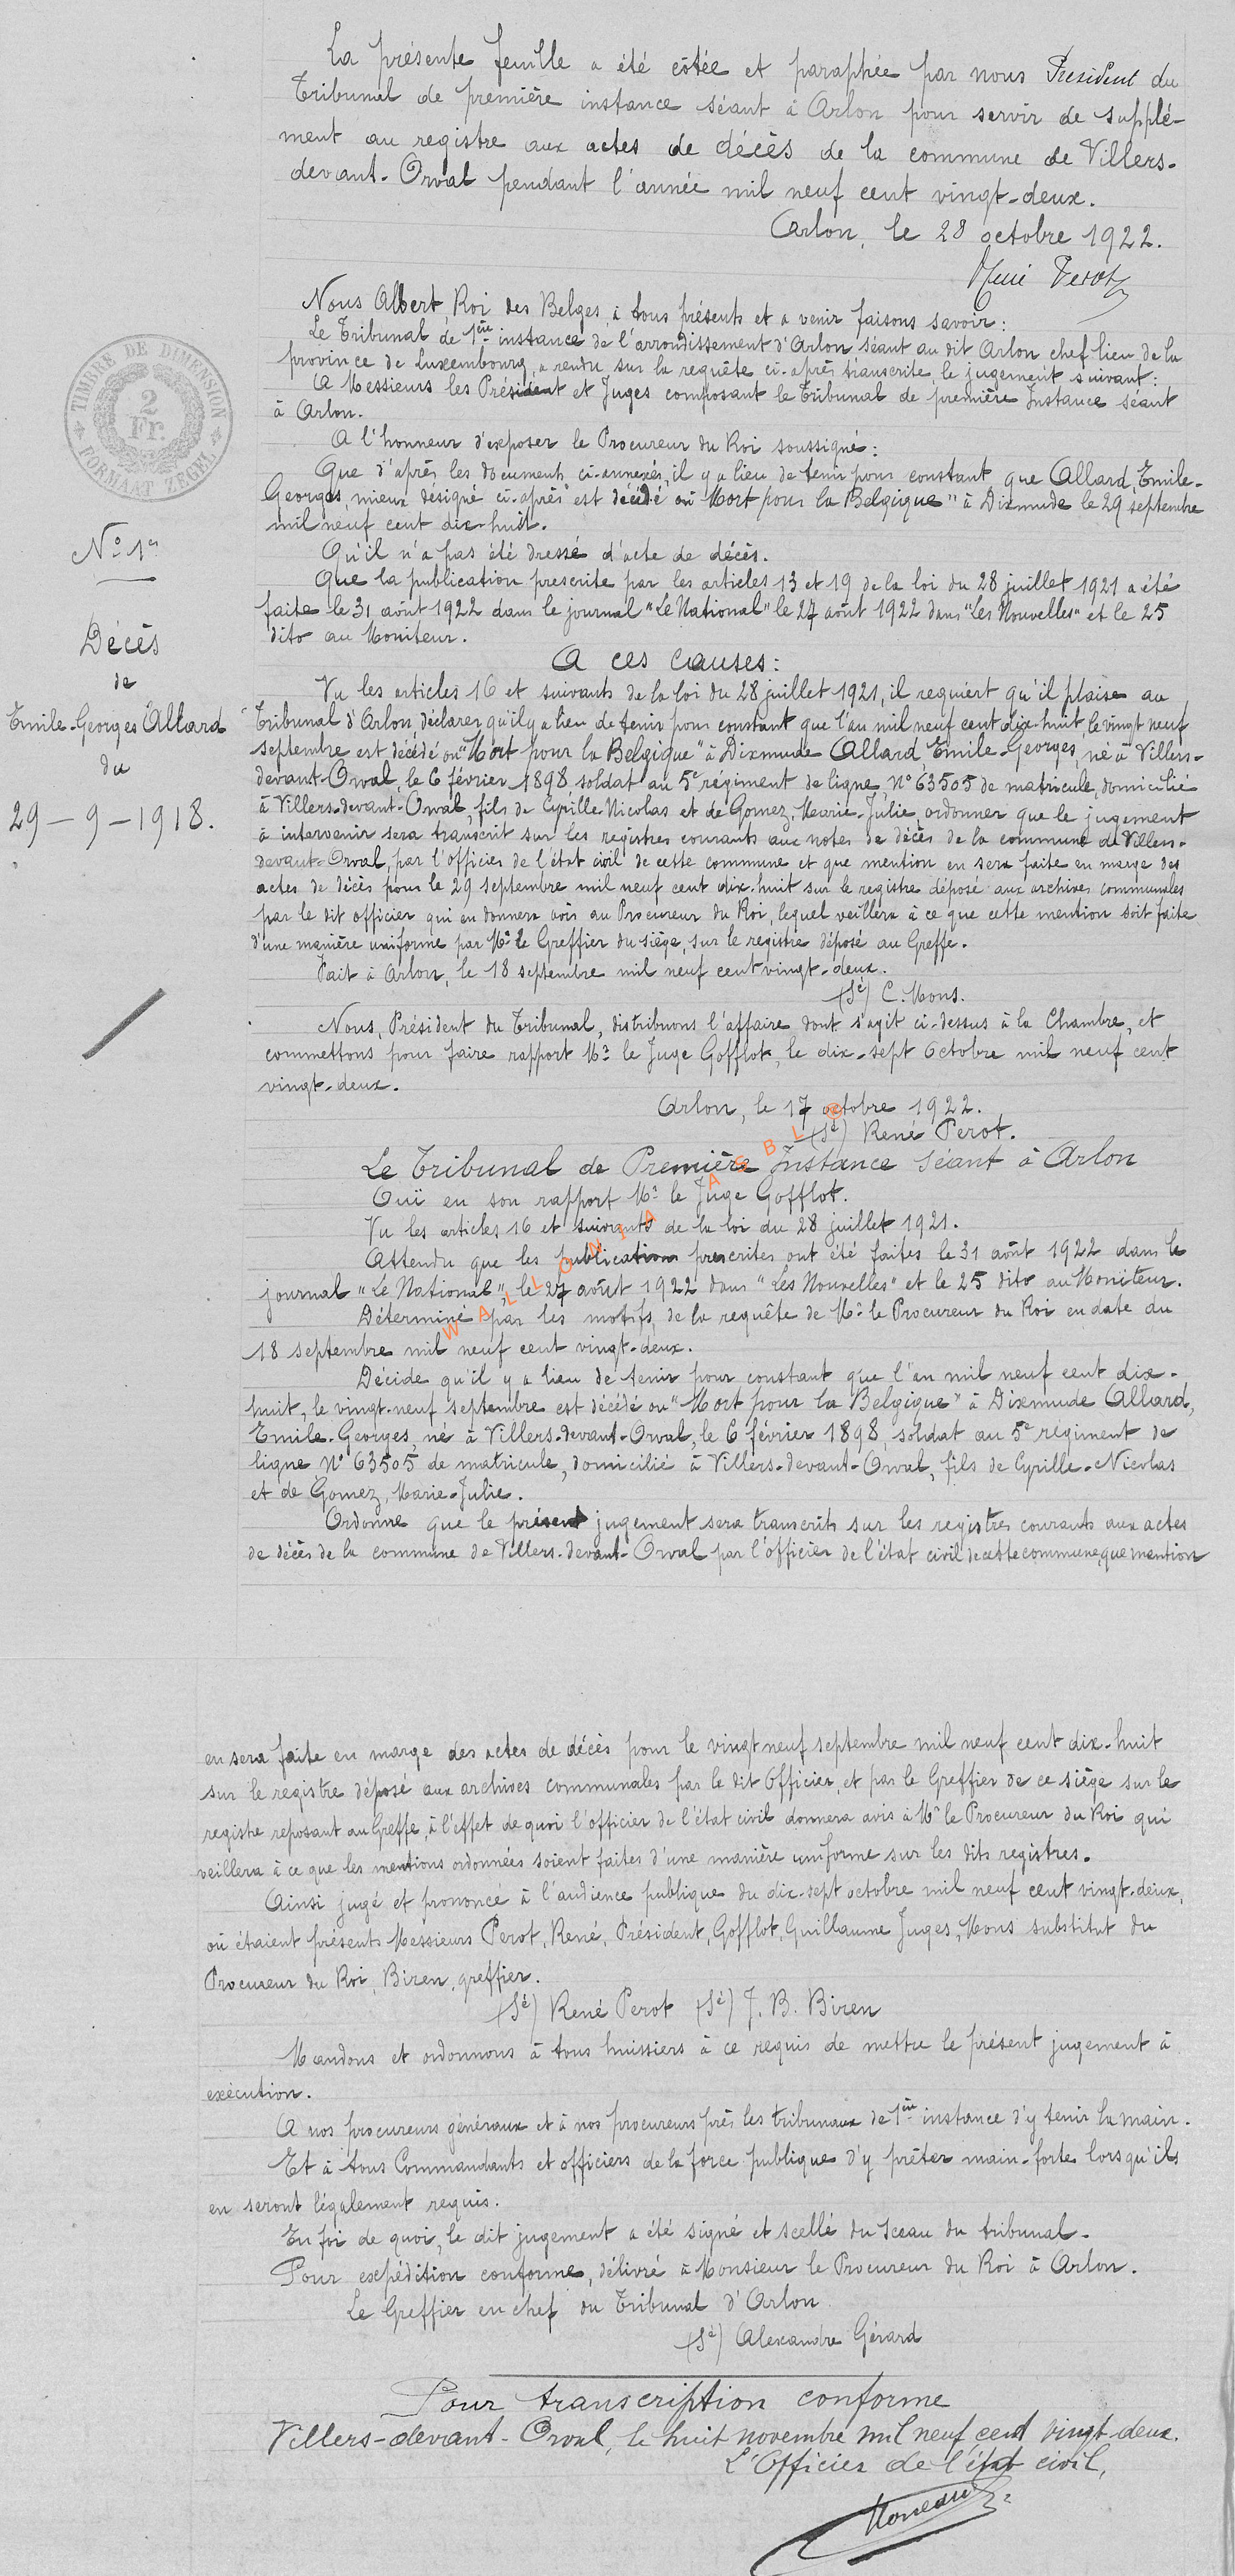 La présente feuille a été côtée et paraphée par nous Président du
Tribunal de première instance séant à Arlon pour servir de supplé-
ment au registre aux actes de décès de la commune de Villers-
devant-Orval pendant l'année mil neuf cent vingt-deux.
Arlon, le 28 octobre 1922.
René Perot
Nous Albert, Roi des Belges, à tous présents et a venir faisons savoir :
Le Tribunal de 1ère instance de l'arrondissement d'Arlon séant au dit Arlon chef lieu de la
province de Luxembourg, a rendu sur la requête ci-après transcrite, le jugement suivant :
A Messieurs les Président et Juges composant le Tribunal de première Instance séant
à Arlon.
TIMBRE DE DIMENSION
2
Fr.
FORMAAT ZEGEL
A l'honneur d'exposer le Procureur du Roi soussigné :
Que d'après les documents ci-annexés, il y a lieu de tenir pour constant que Allard, Emile-
Georges, mieux désigné ci-après est décédé ou "Mort pour la Belgique" à Dixmude le 29 septembre
mil neuf cent dix-huit.
N° 1er
Qu'il n'a pas été dressé d'acte de décès.
Que la publication prescrite par les articles 13 et 19 de la loi du 28 juillet 1921 a été
faite le 31 août 1922 dans le journal "Le National" le 27 août 1922 dans "Les Nouvelles" et le 25
dito au Moniteur.
Décès
de
Emile-Georges Allard
du
29 - 9 - 1918.
A ces Causes :
Vu les articles 16 et suivants de la loi du 28 juillet 1921, il requiert qu'il plaise au
Tribunal d'Arlon déclarer qu'il y a lieu de tenir pour constant que l'an mil neuf cent dix-huit, le vingt neuf
septembre est décédé ou "Mort pour la Belgique" à Dixmude Allard, Emile-Georges, né à Villers-
devant-Orval, le 6 février 1898, soldat au 5e régiment de ligne, N° 63505 de matricule, domicilié
à Villers-devant-Orval, fils de Cyrille-Nicolas et de Gomez, Marie-Julie, ordonner que le jugement
à intervenir sera transcrit sur les registres courants aux notes de décès de la commune de Villers-
devant-Orval, par l'officier de l'état civil de cette commune et que mention en sera faite en marge des
actes de décès pour le 29 septembre mil neuf cent dix-huit sur le registre déposé aux archives communales
par le dit officier qui en donnera avis au Procureur du Roi, lequel veillera à ce que cette mention soit faite
d'une manière uniforme par Mr le Greffier du siège, sur le registre déposé au Greffe.
Fait à Arlon, le 18 septembre mil neuf cent vingt-deux.
(Sé) C. Mons.
Nous, Président du Tribunal, distribuons l'affaire dont s'agit ci-dessus à la Chambre, et
commettons pour faire rapport Mr le Juge Gofflot, le dix-sept Octobre mil neuf cent
vingt-deux.
Arlon, le 17 octobre 1922.
(Sé) René Perot.
Le Tribunal de Première Instance séant à Arlon
Ouï en son rapport Mr le Juge Gofflot.
Vu les articles 16 et suivants de la loi du 28 juillet 1921.
Attendu que les publications prescrites ont été faites le 31 août 1922 dans le
journal "Le National", le 27 août 1922 dans "Les Nouvelles" et le 25 dito au Moniteur.
Déterminé par les motifs de la requête de Mr le Procureur du Roi en date du
18 septembre mil neuf cent vingt-deux.
WALLONIA ASBL ©
Décide qu'il y a lieu de tenir pour constant que l'an mil neuf cent dix-
huit, le vingt-neuf septembre est décédé ou "Mort pour la Belgique" à Dixmude Allard,
Emile-Georges, né à Villers-devant-Orval, le 6 février 1898, soldat au 5e régiment de
ligne N° 63505 de matricule, domicilié à Villers-devant-Orval, fils de Cyrille-Nicolas
et de Gomez, Marie-Julie.
Ordonne que le présent jugement sera transcrits sur les registres courants aux actes
de décès de la commune de Villers-devant-Orval par l'officier de l'état civil de cette commune, que mention
en sera faite en marge des actes de décès pour le vingt neuf septembre mil neuf cent dix-huit
sur le registre déposé aux archives communales par le dit Officier, et par le Greffier de ce siège sur le
registre reposant au Greffe, à l'effet de quoi l'officier de l'état civil donnera avis à Mr le Procureur du Roi qui
veillera à ce que les mentions ordonnées soient faites d'une manière uniforme sur les dits registres.
Ainsi jugé et prononcé à l'audience publique du dix-sept octobre mil neuf cent vingt-deux,
où étaient présents Messieurs Perot, René, Président, Gofflot, Guillaume Juges, Mons substitut du
Procureur du Roi, Biren, greffier.
(Sé) René Perot (Sé) J. B. Biren
Mandons et ordonnons à tous huissiers à ce requis de mettre le présent jugement à
exécution.
A nos procureurs généraux et à nos procureurs près les tribunaux de 1ère instance d'y tenir la main.
Et à tous Commandants et officiers de la force publique d'y prêter main-forte lorsqu'ils
en seront légalement requis.
En foi de quoi, le dit jugement a été signé et scellé du Sceau du tribunal.
Pour expédition conforme, délivré à Monsieur le Procureur du Roi à Arlon.
Le Greffier en chef du Tribunal d'Arlon
(Sé) Alexandre Gérard
Pour transcription conforme
Villers-devant-Orval, le huit novembre mil neuf cent vingt-deux.
L'Officier de l'état civil,